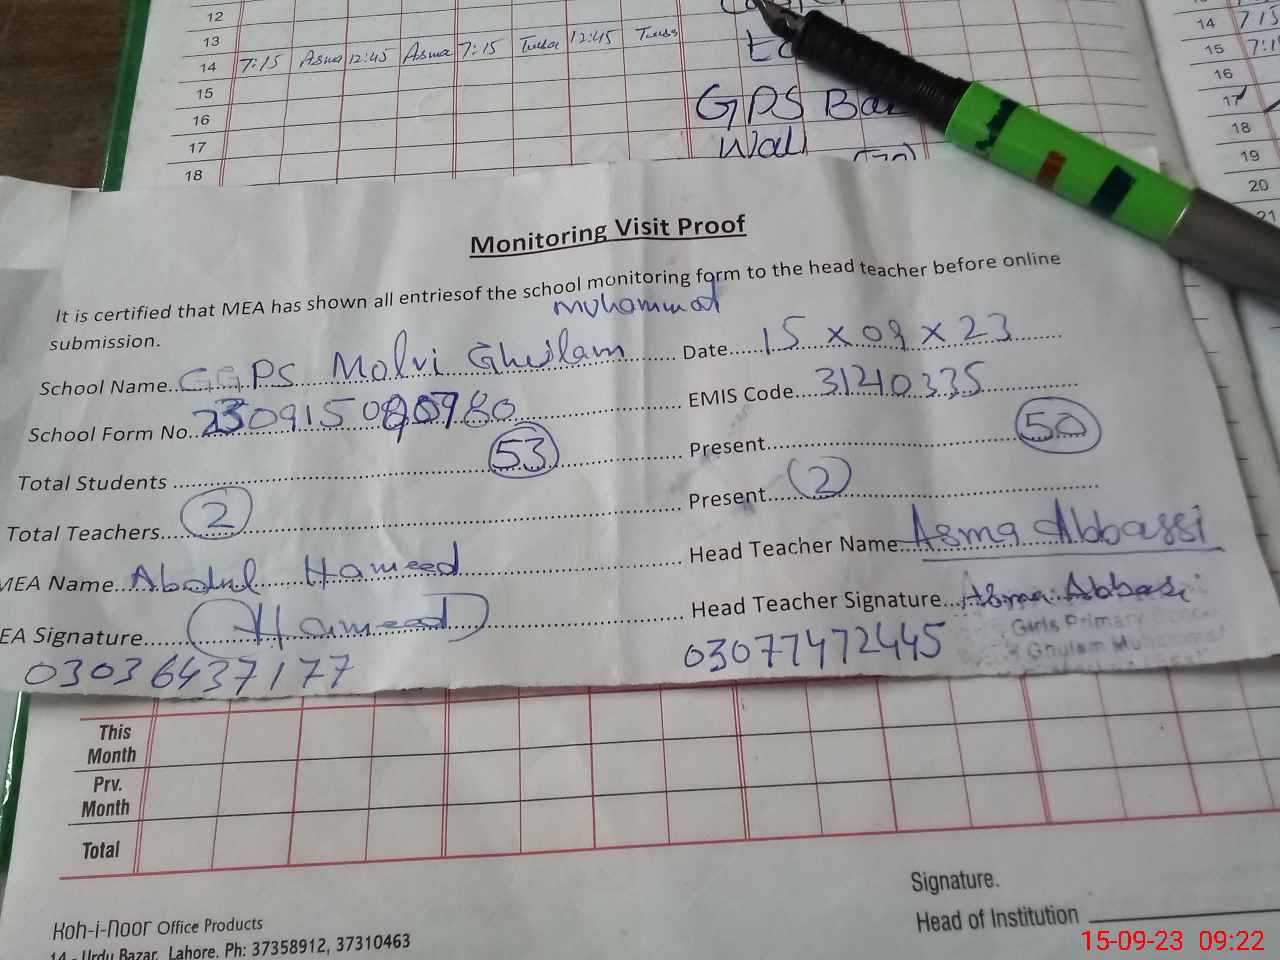 12
13
14 7:15 Asma 12:45 Asma 7:15 12:45
15
16 GPS
17 Wali
18
14 7:15
15
16
17
18
19
20
21
Monitoring Visit Proof
It is certified that MEA has shown all entriesof the school monitoring form to the head teacher before online
submission.
Muhammad
School Name GGPS Molvi Ghulam Date 15 x 09 x 23
School Form No. EMIS Code 31210335
Total Students 53 Present 50
Total Teachers 2 Present 2
MEA Name Abdul Hameed Head Teacher Name Asma Abbassi
EA Signature Hameed Head Teacher Signature Asma Abbasi
03036437177 03077472445
Girls Primary
Ghulam
This
Month
Prv.
Month
Total
Signature.
Head of Institution
Koh-i-noor Office Products
14 - Urdu Bazar, Lahore. Ph: 37358912, 37310463
15-09-23 09:22